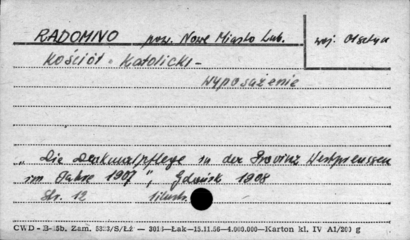 RADOMNO pow. Nowe Miasto Lub. woj. Olsztyn
Kościół Katolicki -
Wyposażenie
"Die Denkmalpflege in der Provinz Westpreussen
im Jahre 1907", Gdańsk 1908
Str. 12 ilustr.
CWD - B-15b. Zam. 5323/S/Łż - 2013-Łak-13.11.56-4.000.000-Karton kl. IV A1/200 g